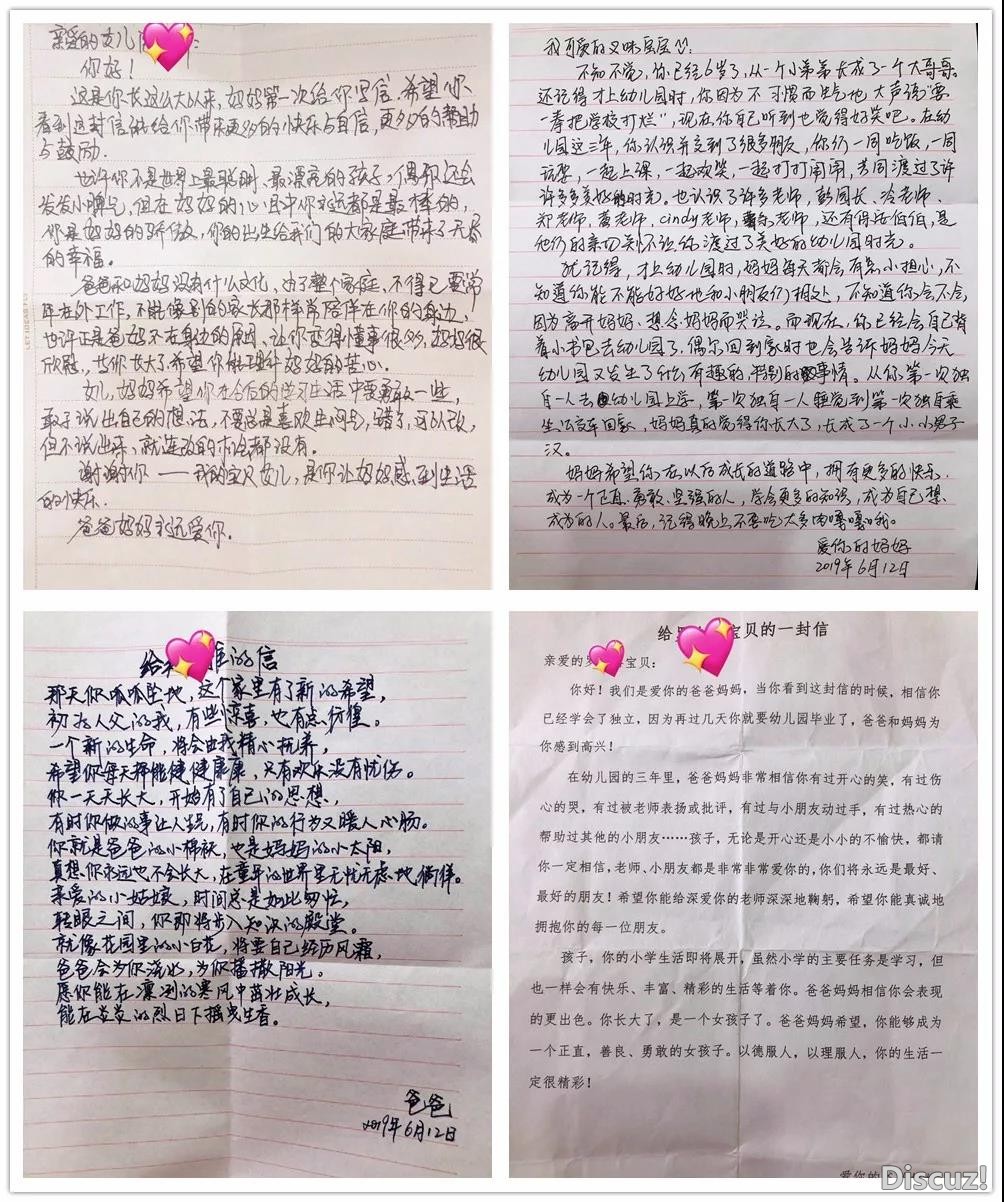 亲爱的女儿
你好！
这是你长这么大以来，妈妈第一次给你写信，希望你
看到这封信能给你带来更多的快乐与自信，更多的帮助
与鼓励．
也许你不是世界上最聪明、最漂亮的孩子，偶尔还会
发发小脾气，但在妈妈的心目中你永远都是最棒的，
你是妈妈的骄傲，你的出生给我们的大家庭带来了无尽
的幸福。
爸爸和妈妈没有什么文化，为了整个家庭，不得已要常
年在外工作，不能像别的家长那样常陪伴在你的身边，
也许正是爸妈不在身边的原因，让你变得懂事很多，妈妈很
欣慰，当你长大了希望你能理解妈妈的苦心．
女儿，妈妈希望你在今后的学习生活中要勇敢一些，
敢于说出自己的想法，不要总是喜欢生闷气，错了，可以改，
但不说出来，就连改的机会都没有．
谢谢你——我的宝贝女儿，是你让妈妈感到生活
的快乐．
爸爸妈妈永远爱你．
我可爱的又咪宝宝：
不知不觉，你已经6岁了，从一个小弟弟长成了一个大哥哥。
还记得才上幼儿园时，你因为不习惯而生气地大声说“要
一拳把学校打烂”，现在你自己听到也觉得好笑吧。在幼
儿园这三年，你认识并交到了很多朋友，你们一同吃饭，一同
玩耍，一起上课，一起欢笑，一起打打闹闹，共同渡过了许
许多多美好的时光。也认识了许多老师，彭园长、冷老师、
郑老师，黄老师，cindy老师，老师，还有保洁伯伯，是
他们的亲切关怀让你渡过了美好的幼儿园时光。
犹记得，才上幼儿园时，妈妈每天都会有点小担心，不
知道你能不能好好地和小朋友们相处，不知道你会不会
因为离开妈妈、想念妈妈而哭泣。而现在，你已经会自己背
着小书包去幼儿园了，偶尔回到家时也会告诉妈妈今天
幼儿园又发生了什么有趣的，特别的事情。从你第一次独
自一人去幼儿园上学，第一次独自一人睡觉到第一次独自乘
坐校车回家，妈妈真的觉得你长大了，长成了一个小小男子
汉。
妈妈希望你在以后成长的道路中，拥有更多的快乐，
成为一个正直、勇敢、坚强的人，学会更多的知识，成为自己想
成为的人。最后，记得晚上不要吃太多肉嘎嘎哦。
爱你的妈妈
2019年6月12日
给 的信
那天你呱呱坠地，这个家里有了新的希望，
初为人父的我，有些惊喜，也有点彷徨。
一个新的生命，将会由我精心抚养，
希望你每天都能健健康康，只有欢乐没有忧伤。
你一天天长大，开始有了自己的思想，
有时你做的事让人生气，有时你的行为又暖人心肠。
你就是爸爸的小棉袄，也是妈妈的小太阳，
真想你永远也不会长大，在童年的世界里无忧无虑地徜徉。
亲爱的小姑娘，时间总是如此匆忙，
转眼之间，你即将步入知识的殿堂。
就像花园里的小白花，将要自己经历风霜，
爸爸会为你浇水，为你播撒阳光。
愿你能在凛冽的寒风中茁壮成长，
能在炎炎的烈日下摇曳生香。
爸爸
2019年6月12日
给 宝贝的一封信
亲爱的 宝贝：
你好！我们是爱你的爸爸妈妈，当你看到这封信的时候，相信你
已经学会了独立，因为再过几天你就要幼儿园毕业了，爸爸和妈妈为
你感到高兴！
在幼儿园的三年里，爸爸妈妈非常相信你有过开心的笑，有过伤
心的哭，有过被老师表扬或批评，有过与小朋友动过手，有过热心的
帮助过其他的小朋友……孩子，无论是开心还是小小的不愉快，都请
你一定相信，老师、小朋友都是非常非常爱你的，你们将永远是最好、
最好的朋友！希望你能给深爱你的老师深深地鞠躬，希望你能真诚地
拥抱你的每一位朋友。
孩子，你的小学生活即将展开，虽然小学的主要任务是学习，但
也一样会有快乐、丰富、精彩的生活等着你。爸爸妈妈相信你会表现
的更出色。你长大了，是一个女孩子了。爸爸妈妈希望，你能够成为
一个正直，善良、勇敢的女孩子。以德服人，以理服人，你的生活一
定很精彩！
爱你的
Discuz!